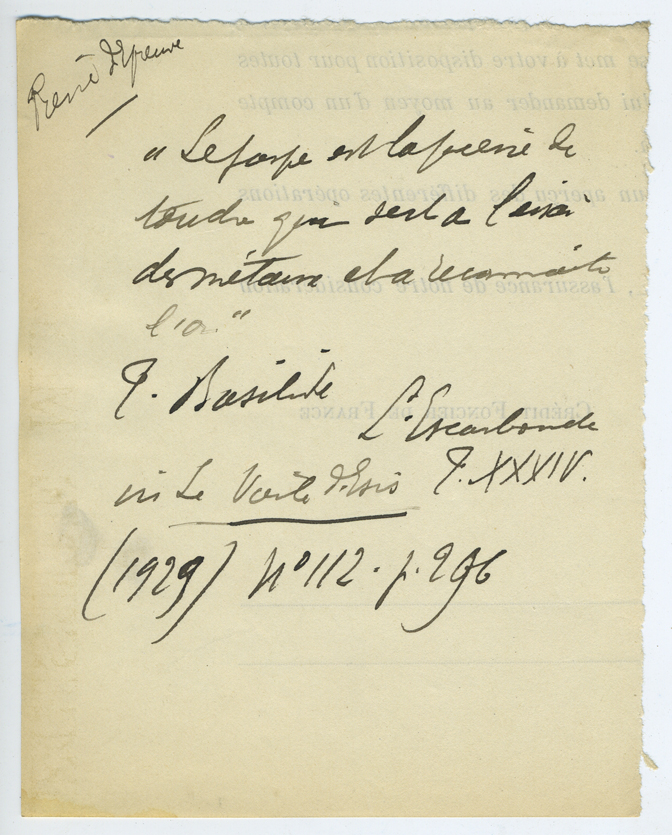 Pierre d'épreuve
met à votre disposition pour toutes
lui demander au moyen d'un compte
" Le jaspe est la pierre de
un aperçu des différentes opérations
touche qui sert à l'essai
des métaux et à reconnaître
l'assurance de notre considération
l'or."
T. Basilide
CRÉDIT FONCIER DE FRANCE
L'Escarboucle
in Le Voile d'Isis T. XXXIV.
(1929) N° 112. p. 296